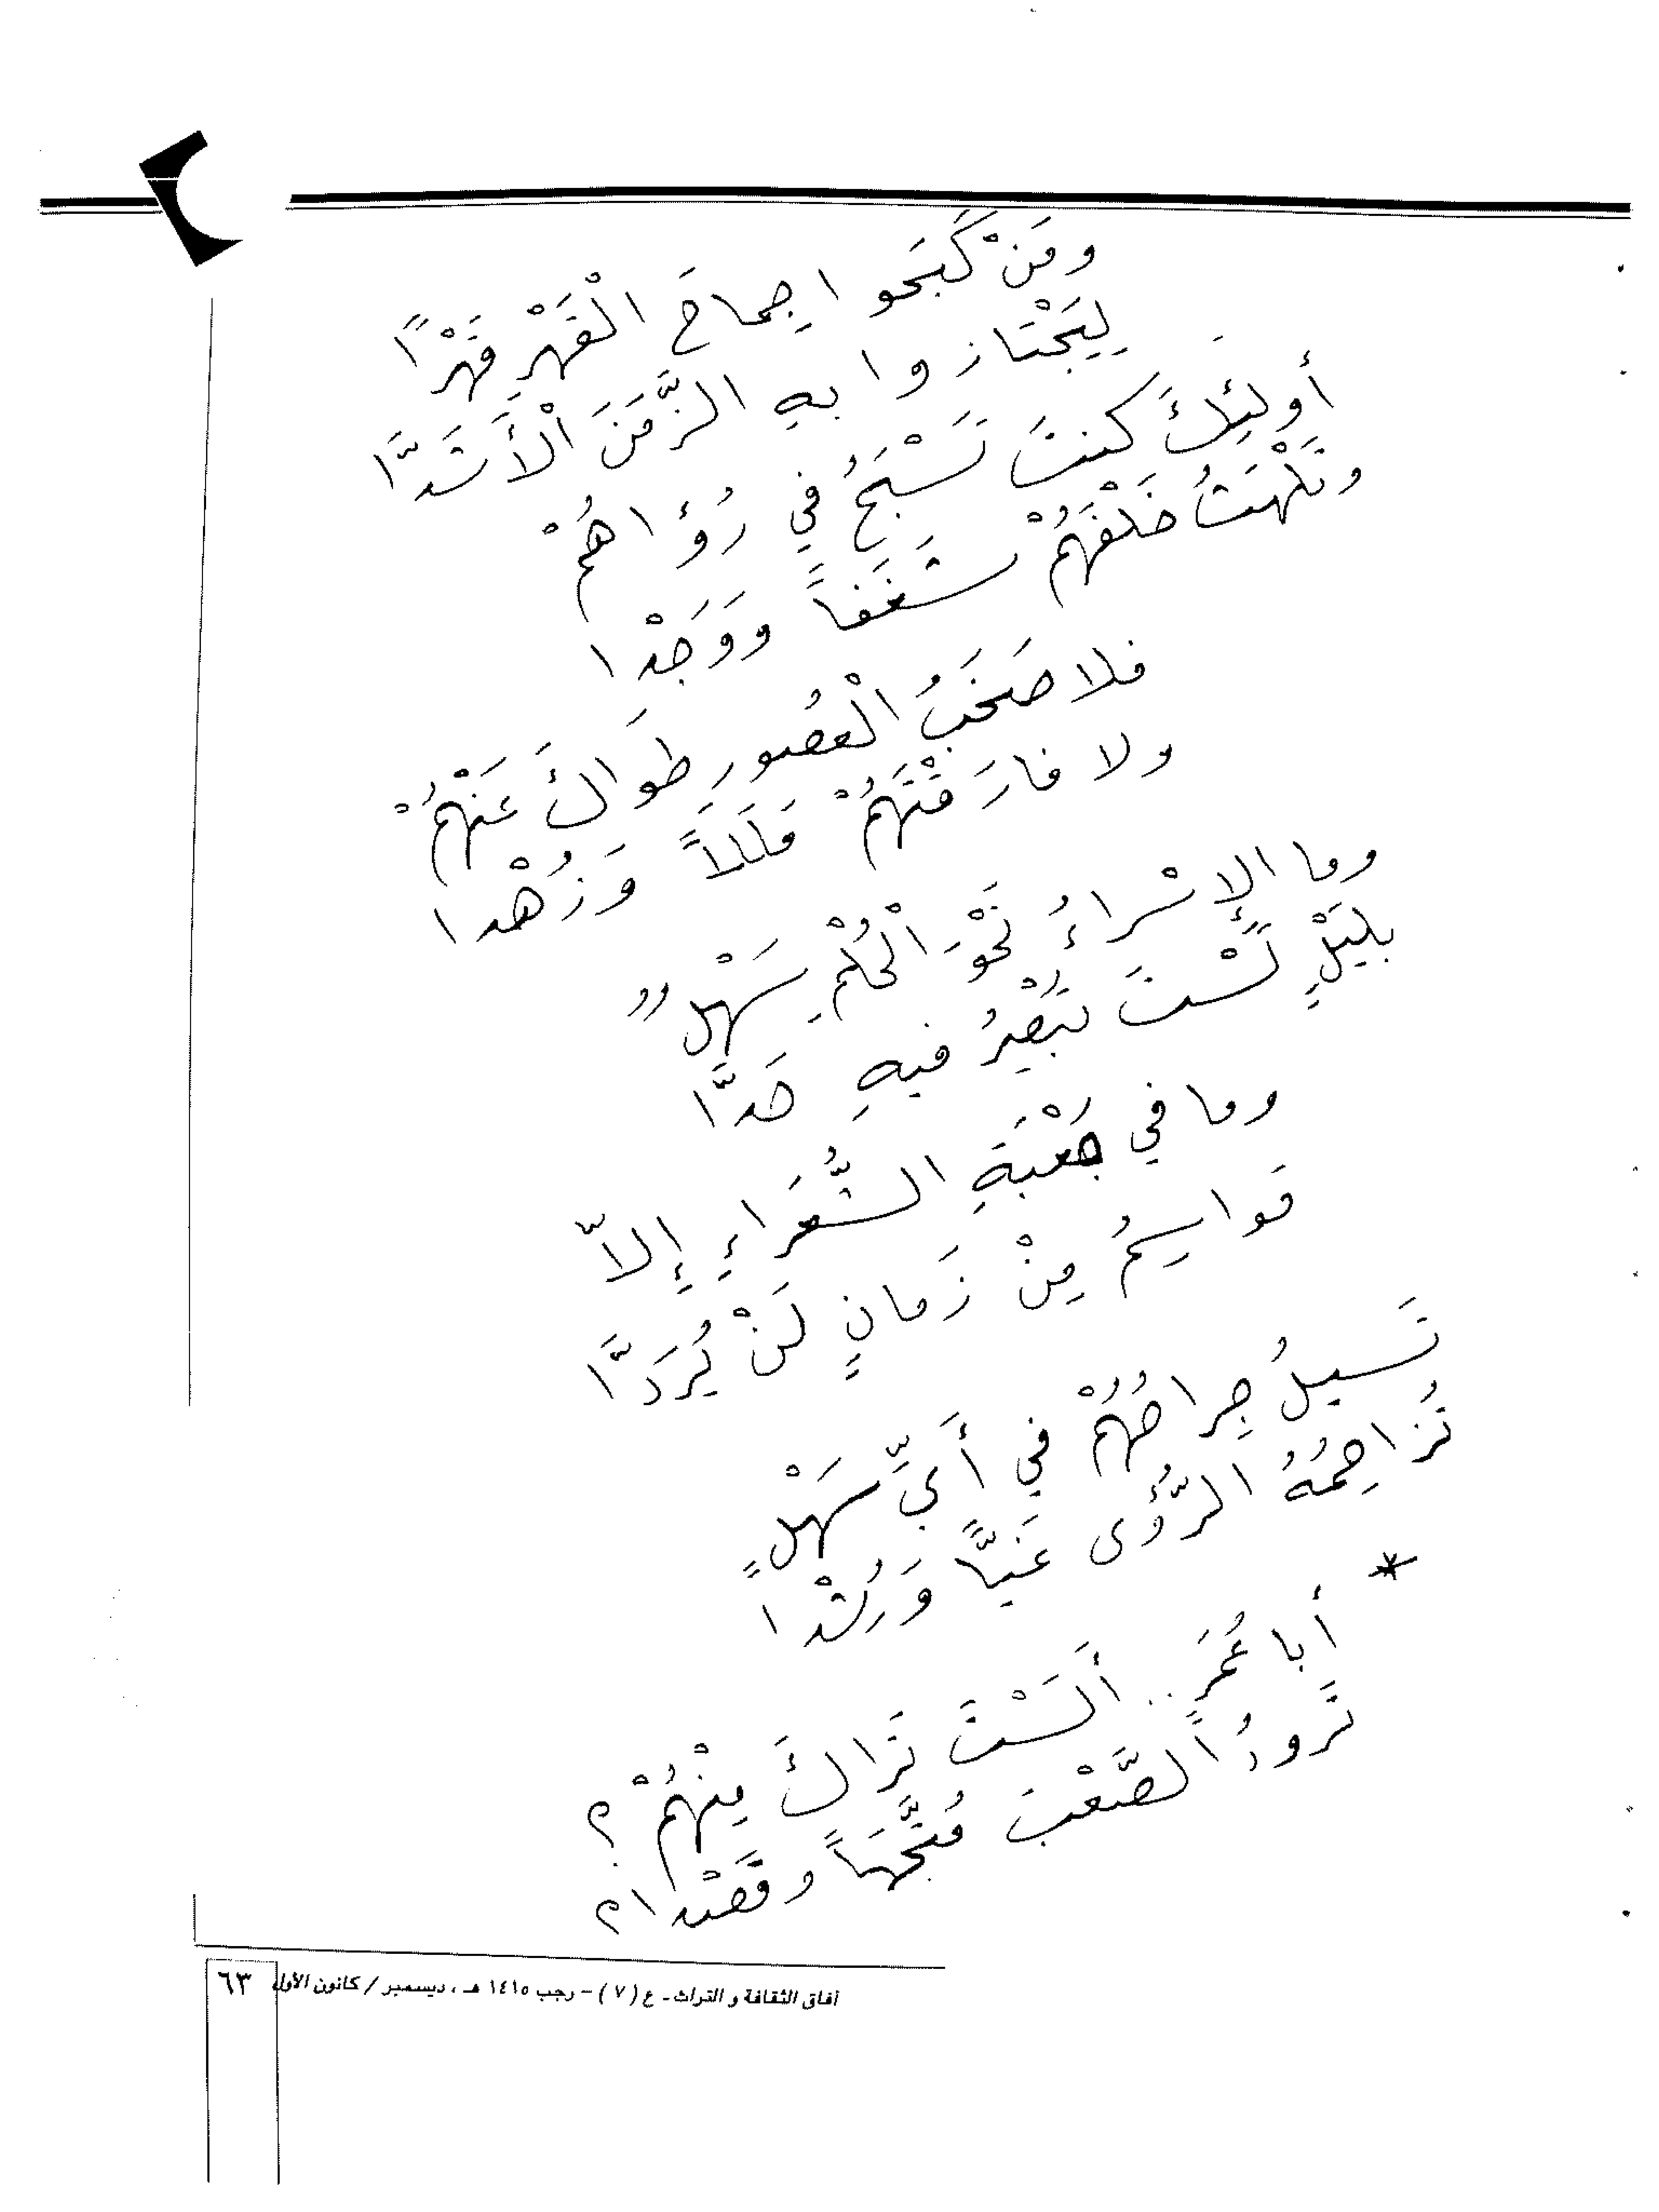 ومَنْ كَبَحوا جِماحَ الْقَهْرِ قَهْراً
لِيَجْتازوا بهِ الزَّمَنَ الْأَشَدَّا
أولئِكَ كنتَ تَسْبَحُ في رُؤاهُمْ
وتَلْهَثُ خَلْفَهُمْ شَغَفاً وَوَجْدا
فلا صَخَبُ الْعصُورِ طَواكَ عَنْهُمْ
ولا فارَقْتَهُمْ مَلَلاً وَزُهْدا
وما الإسْراءُ نَحْوَ الْحُلْمِ سَهْلٌ
بلَيْلٍ لَسْتَ تُبْصِرُ فيهِ حَدَّا
وما في جَعْبَةِ الشُّعَراءِ إلاّ
مَواسِمُ مِنْ زَمانٍ لَنْ يُرَدَّا
تَسيلُ جِراحُهُمْ في أَيِّ سَهْلٍ
تُزاحِمُهُ الرُّؤَى غَيَّاً وَرُشْدا
*
أبا عُمَرٍ .. أَلَسْتَ تَراكَ مِنْهُمْ ؟
تَرودُ الصَّعْبَ مُتَّجَهاً وقَصْدا؟
آفاق الثقافة و التراث ـ ع ( ٧ ) – رجب ١٤١٥ هـ ، ديسمبر / كانون الأول
٦٣